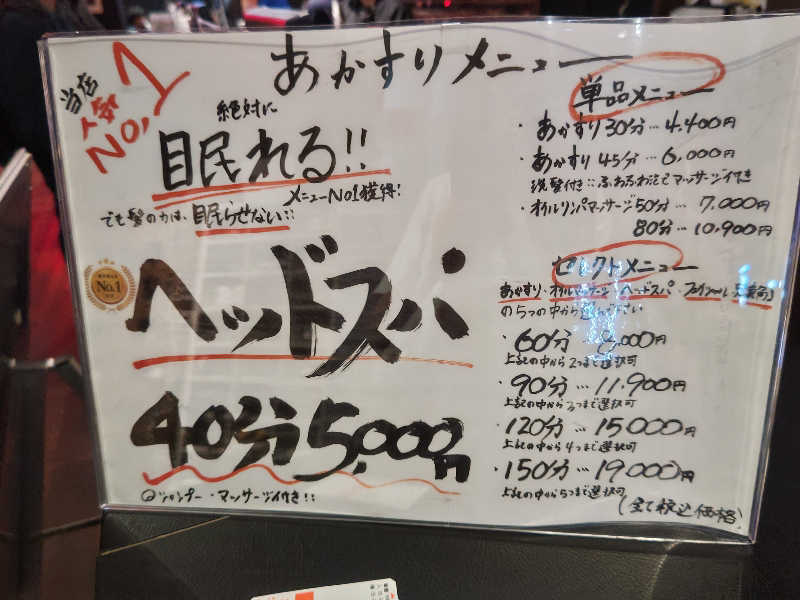 あかすりメニュー
当店
人気
No,1
絶対に
眠れる!!
メニューNo1獲得!
でも髪の力は、眠らせない::
No.1
ヘッドスパ
40分5,000円
シャンプー・マッサージ付き!!
単品メニュー
・あかすり30分…4,400円
・あかすり45分…6,000円
洗髪付き::ふわふわ泡でマッサージ付き
・オイルリンパマッサージ50分…7,000円
80分…10,900円
セレクトメニュー
あかすり・オイルマッサージ・ヘッドスパ・
の5つの中から
・60分…8,000円
上記の中から2つまで選択可
・90分…11,900円
上記の中から3つまで選択可
・120分…15,000円
上記の中から4つまで選択可
・150分…19,000円
上記の中から5つまで選択可
(全て税込価格)